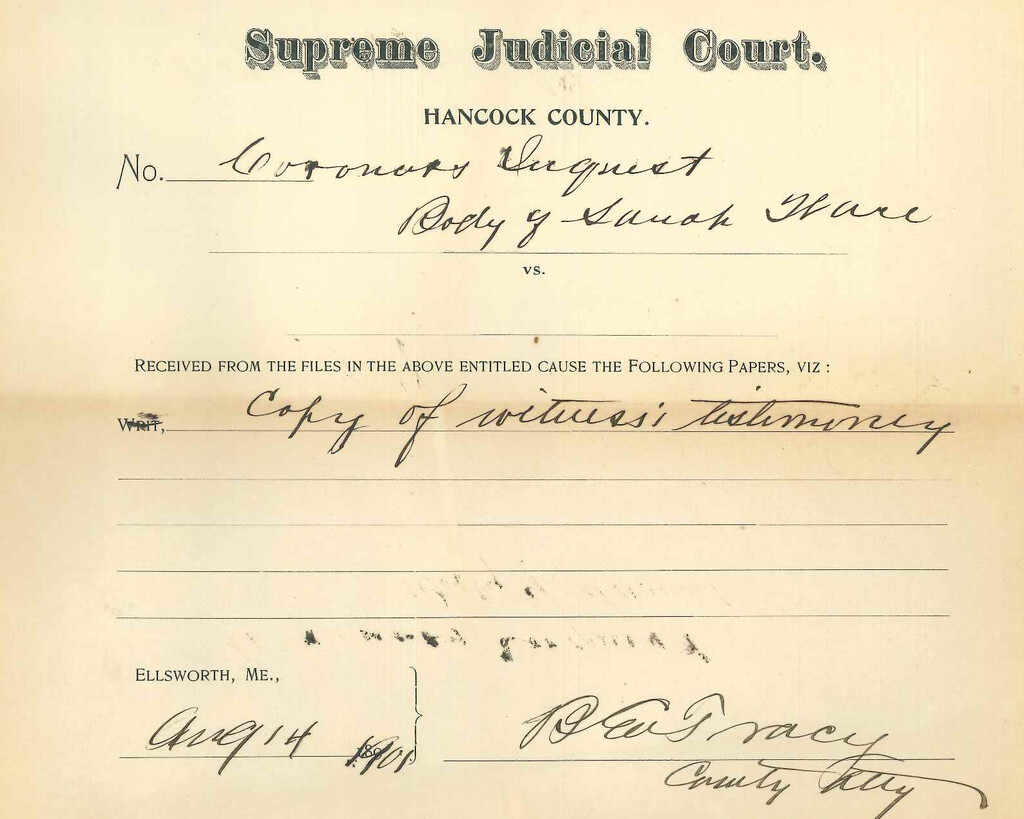 Supreme Judicial Court.
HANCOCK COUNTY.
No. Coronors Inquest
Body of Sarah Ware
vs.
RECEIVED FROM THE FILES IN THE ABOVE ENTITLED CAUSE THE FOLLOWING PAPERS, VIZ :
WRIT, Copy of witness's testimoney
ELLSWORTH, ME.,
Aug 14 1901
B E Tracy
County Atty